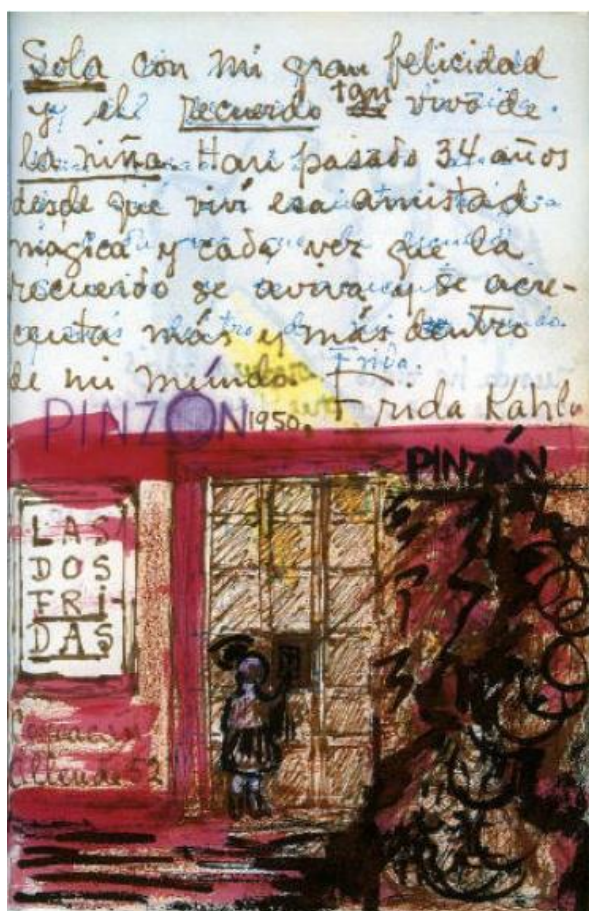 Sola con mi gran felicidad
y el recuerdo tan vivo de
la niña. Han pasado 34 años
desde que viví esa amistad
mágica y cada vez que la
recuerdo se aviva y se acre-
centa más y más dentro
de mi mundo.
PINZÓN 1950. Frida Kahlo
PINZÓN
LAS
DOS
FRI-
DAS
Coyoacán
Allende 52